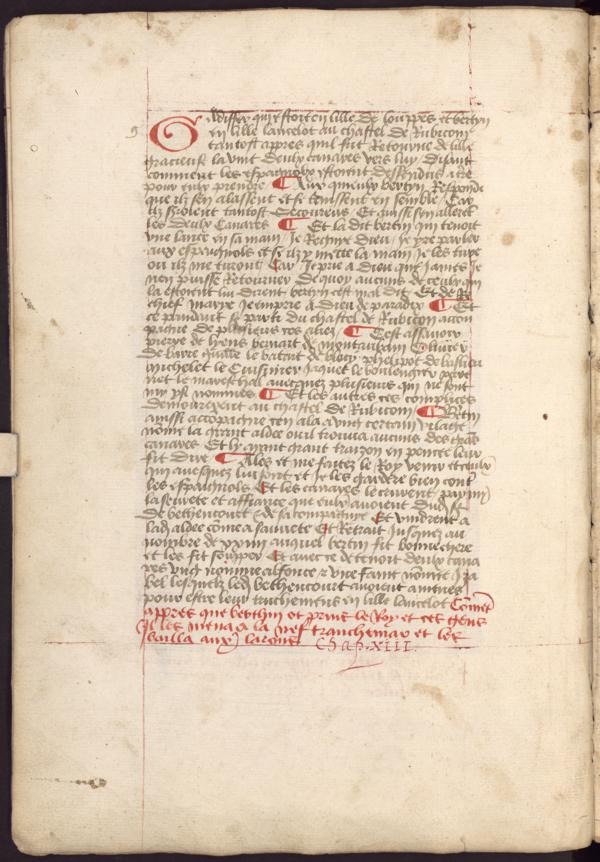 Gadiffer qui estoit en lille de louppes et bertin
en lille lancelot au chastel de Rubicom
tantost appres quil fut Retourne de lille
gracieuse la vint deulx canares vers luy disant
comment les espaignolz estoient dessendus a tre
pour eulx prendre Aux quieulx bertin Respondi
que ilz sen alassent et se tenissent en semble Car
ilz seroient tantost secoureus Et ainsi sen allerent
les deulx Canares Et la dit bertin qui tenoit
une lance en sa main Je Regnie dieu je yre parler
aux espaignols et se ilz y mette la main je les turé
ou ilz me turont Car Je prie a dieu que James je
nen puisse Retourner De quoy aucuns de ceulx qui
la estoient lui dirent bertin cest mal dit Et de Re
chief marye je emprie a dieu de paradix Et
ce pandant se parti du chastel de Rubicon acon
paigne De plusieurs ces aliez Cest assavoir
pierre de liens bernart de montauban Olivier
de barre guille le batart de blecy phelipot de baslieu
michelet le Cuisinier jaquet le boulengier perre
net le mareschal avecquez plusieurs qui ne sont
my ysi nommes Et les autres ces complices
demourerent au chastel de Rubicom Bertin
ainsi accompaigne sen ala a ung certain vilage
nome la grant aldee ou il trouva aucuns des grans
canares Et ly ayant grant traizon en pencee leur
fit dire Ales et me faitez le Roy venir et ceulx
qui avesquez lui sont et je les garderé bien contre
les espaignols Et les canares le crurent par my
la seurete et affiance que eulx avoient dud sr
de bethencourt & de sa compaignie Et vindrent a
lad aldee cõme a sauvete Et Retrait Jusquez au
nombre de xxiiii auquel bertin fit bonne chere
et les fit souper Et avec ce detenoit deulx cana
res ung nomme alfonce & une fame nomee Iza
bel lesquelz led bethencourt avoient amenes
pour estre leur truchemens en lille lancelot Cõment
appres que berthin ot prins le Roy et ces gens
Il les mena a la nef tranchemar et les
bailla aux larons Chap. XIII.